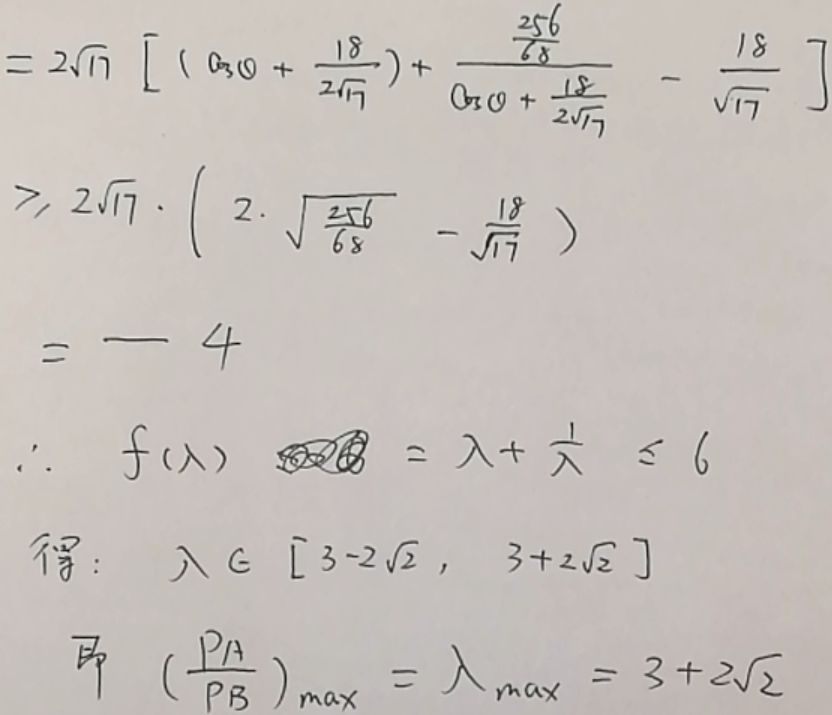 = 2√17 [ ( cosθ + 18/(2√17) ) + (256/68)/(cosθ + 18/(2√17)) - 18/√17 ]
≥ 2√17 · ( 2 · √(256/68) - 18/√17 )
= - 4
∴ f(λ) = λ + 1/λ ≤ 6
得: λ ∈ [ 3-2√2 , 3+2√2 ]
即 (PA/PB)max = λmax = 3+2√2